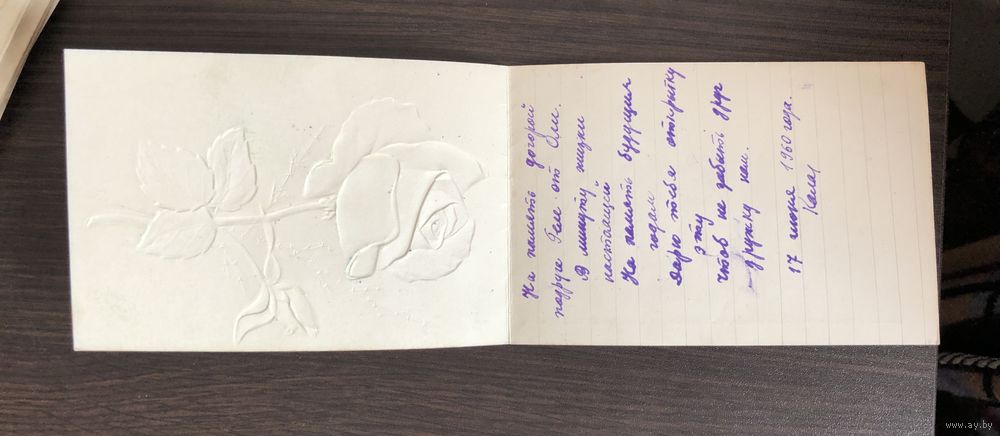 На память догорой
подруге Гале от Оли.
В минуту жизни
настоящей
На память будущия
годам
Дарю тебе открытку
эту
чтоб не забыть друг
дружку нам.
17 июня 1960 года.
www.ay.by